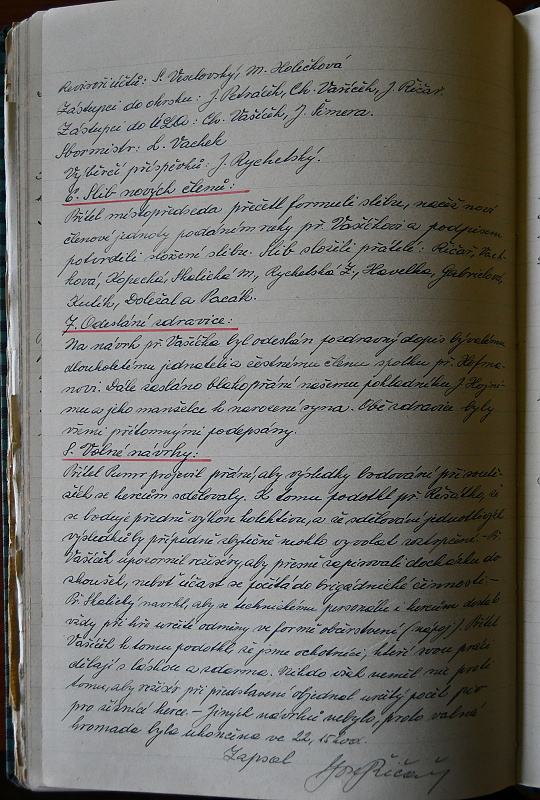 Revisoři účtů: S. Veselovský, M. Holečková
Zástupci do okrsku: J. Petráček, Ch. Vašíček, J. Říčař.
Zástupci do ÚLDu: Ch. Vašíček, J. Šimera.
Sbormistr: L. Vachek
Výběrčí příspěvků: J. Rychetský.
6. Slib nových členů:
Přítel místopředseda přečetl formuli slibu, načež noví
členové jednoty podáním ruky př. Vašíčkovi a podpisem
potvrdili složení slibu. Slib složili přátelé: Říčař, Vach-
ková, Kopecká, Skalická M., Rychetská Z., Havelka, Gabrielová,
Kulík, Doležal a Pacák.
7. Odeslání zdravice:
Na návrh př. Vašíčka byl odeslán pozdravný dopis bývalému
dlouholetému jednateli a čestnému členu spolku př. Hofma-
novi. Dále zasláno blahopřání našemu pokladníku J.
mu a jeho manželce k narození syna. Obě zdravice byly
všemi přítomnými podepsány.
8. Volné návrhy:
Přítel projevil přání, aby výsledky bodování při soutě-
žích se hercům sdělovaly. K tomu podotkl př. Řezátko, že
se boduje předně výkon kolektivu, a že sdělování jednotlivých
výsledků by případně zbytečně mohlo vyvolat roztrpčení. – Př.
Vašíček upozornil režiséry, aby přesně zapisovali docházku do
zkoušek, neboť účast se počítá do brigádnické činnosti. –
Př. Skalický navrhl, aby se technickému personálu i hercům dostalo
vždy při hře určité odměny ve formě občerstvení (nápoj). Přítel
Vašíček k tomu podotkl že jsme ochotníci, kteří svou práci
dělají s láskou a zdarma. Nikdo však neměl nic proti
tomu, aby režisér při představení objednal určitý počet piv
pro žíznivé herce. – Jiných návrhů nebylo, proto valná
hromada byla ukončena ve 22,15 hod.
Zapsal Jos. Říčař